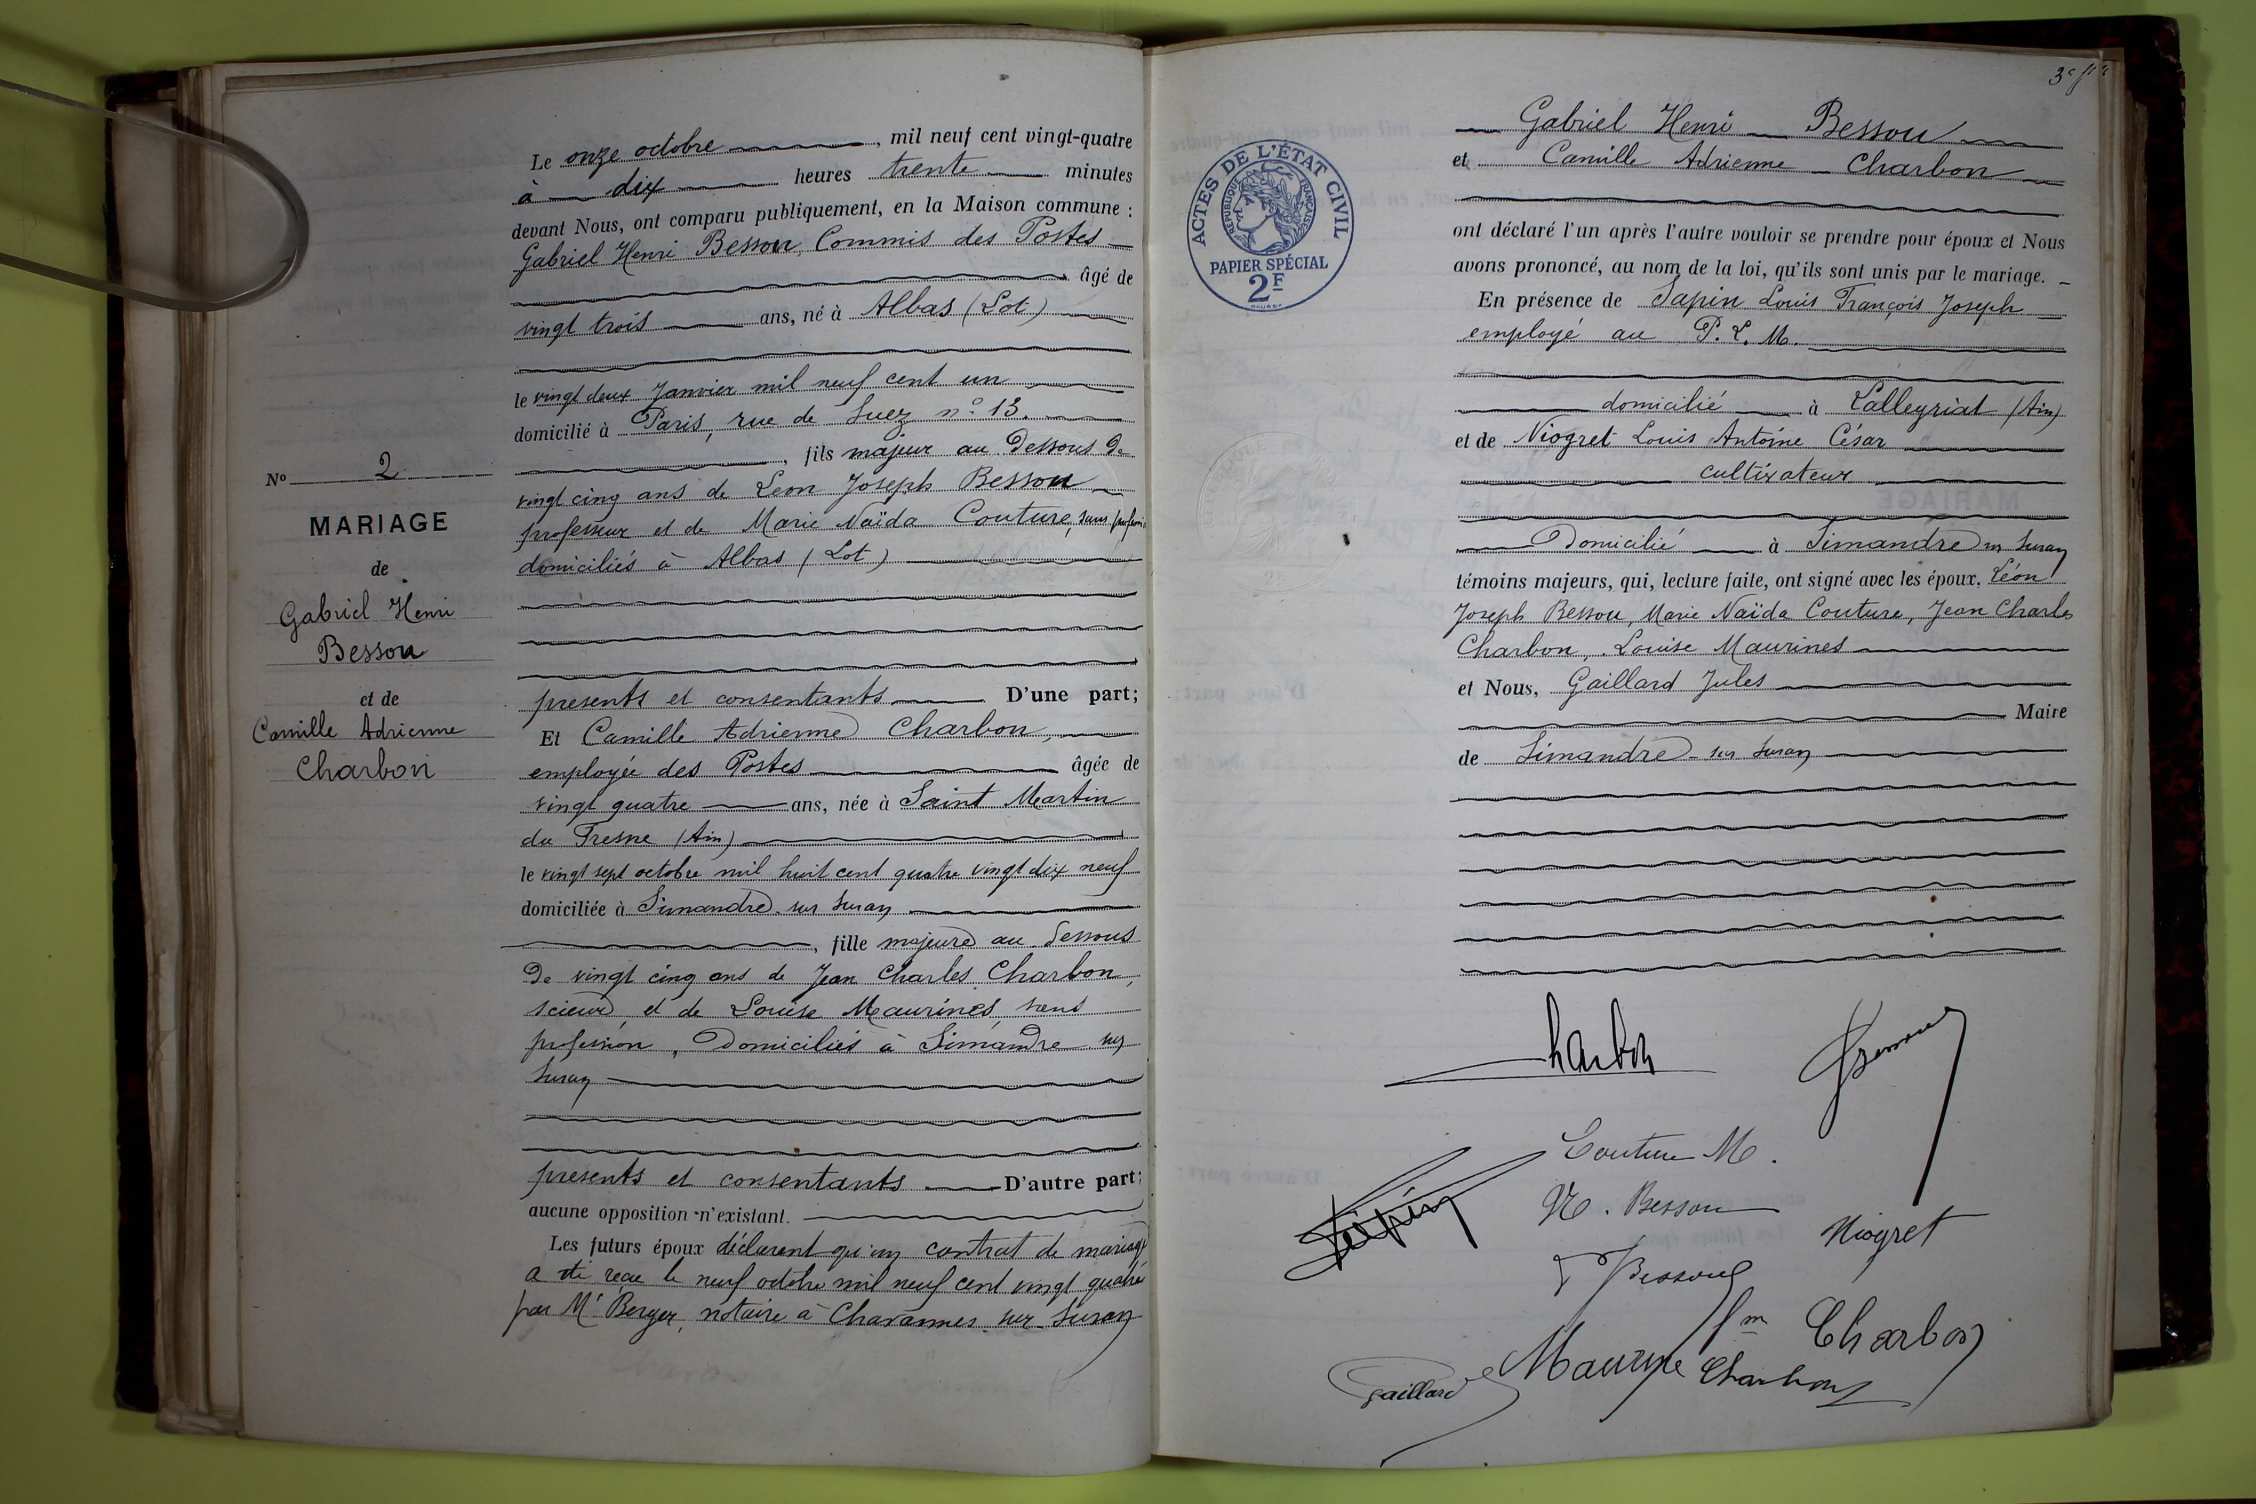 Le onze octobre, mil neuf cent vingt-quatre
à dix heures trente minutes
devant Nous, ont comparu publiquement, en la Maison commune :
Gabriel Henri Bessou, Commis des Postes
âgé de
vingt trois ans, né à Albas (Lot)
le vingt deux Janvier mil neuf cent un
domicilié à Paris, rue de Suez n° 13.
, fils majeur au Dessous De
vingt cinq ans de Léon Joseph Bessou
professeur et de Marie Naïda Couture, sans profession
domiciliés à Albas (Lot)
presents et consentants D'une part;
Et Camille Adrienne Charbon,
employée des Postes âgée de
vingt quatre ans, née à Saint Martin
du Fresne (Ain)
le vingt sept octobre mil huit cent quatre vingt dix neuf
domiciliée à Simandre sur Suran
, fille majeure au Dessous
De vingt cinq ans de Jean Charles Charbon,
scieur, et de Louise Maurines, sans
profession, Domiciliés à Simandre sur
Suran
presents et consentants D'autre part;
aucune opposition n'existant.
Les futurs époux déclarent qu'un contrat de mariage
a été reçu le neuf octobre mil neuf cent vingt quatre
par Me Berger, notaire à Chavannes sur Suran
No 2
MARIAGE
de
Gabriel Henri
Bessou
et de
Camille Adrienne
Charbon
ACTES DE L'ÉTAT CIVIL
RÉPUBLIQUE FRANÇAISE
PAPIER SPÉCIAL
2F
Gabriel Henri Bessou
et Camille Adrienne Charbon
ont déclaré l'un après l'autre vouloir se prendre pour époux et Nous
avons prononcé, au nom de la loi, qu'ils sont unis par le mariage.
En présence de Sapin Louis François Joseph
employé au P. L. M.
domicilié à Lalleyriat (Ain)
et de Niogret Louis Antoine César
cultivateur
Domicilié à Simandre sur Suran
témoins majeurs, qui, lecture faite, ont signé avec les époux. Léon
Joseph Bessou, Marie Naïda Couture, Jean Charles
Charbon, Louise Maurines
et Nous, Gaillard Jules
Maire
de Simandre sur Suran
Charbon
Couture M.
Sapin
N. Bessou
Niogret
Bessou
Charbon
Maurine Charbon
Gaillard